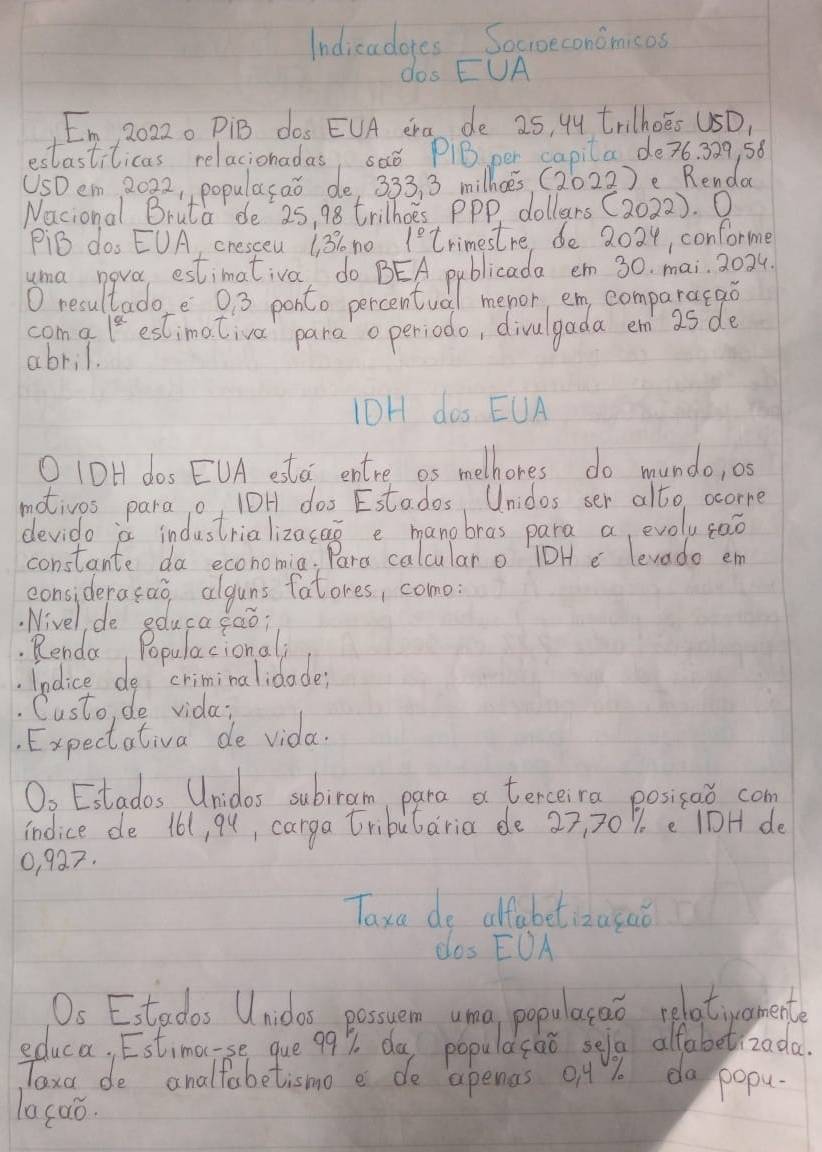 Indicadores Socioeconômicos
dos EUA
Em 2022 o PiB dos EUA éra de 25,44 trilhoẽs USD,
estastíticas relacionadas saõ PIB per capita de 76.329,58
USD em 2022, populaçaõ de 333,3 milhoẽs (2022) e Renda
Nacional Bruta de 25,98 trilhoẽs PPP dollars (2022). O
PiB dos EUA cresceu 1,3% no 1º trimestre de 2024, conforme
uma nova estimativa do BEA publicada em 30. mai. 2024.
O resultado é 0,3 ponto percentual menor em comparaçaõ
com a 1ª estimativa para o periodo, divulgada em 25 de
abril.
IDH dos EUA
O IDH dos EUA está entre os melhores do mundo, os
motivos para o IDH dos Estados Unidos ser alto, ocorre
devido à industrializaçaõ e manobras para a evoluçaõ
constante da economia. Para calcular o IDH é levado em
consideraçaõ alguns fatores, como:
. Nível de educaçaõ;
. Renda Populacional;
. Indice de criminalidade;
. Custo de vida;
. Expectativa de vida.
Os Estados Unidos subiram para a terceira posiçaõ com
índice de 161,94, carga tributária de 27,70% e IDH de
0,927.
Taxa de alfabetizaçaõ
dos EUA
Os Estados Unidos possuem uma populaçaõ relativamente
educa. Estima-se que 99% da populaçaõ seja alfabetizada.
Taxa de analfabetismo é de apenas 0,4% da popu-
laçaõ.